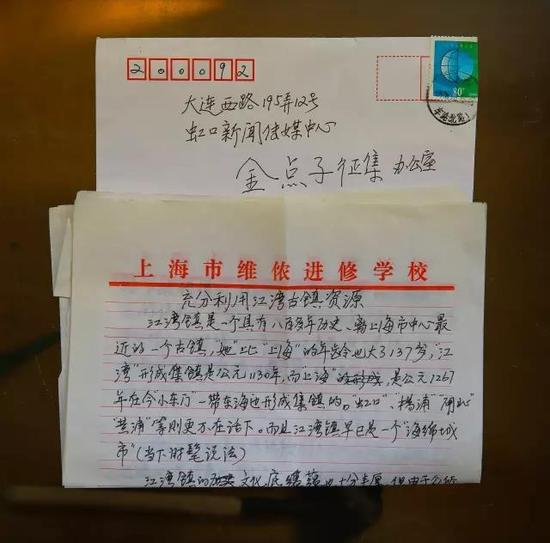 200092
80
大连西路195弄12号
虹口新闻传媒中心
金点子征集 办公室
上海市维侬进修学校
充分利用江湾古镇资源
江湾镇是一个具有八百多年历史、离上海市中心最
近的一个古镇，"她"比"上海"的年龄也大了137岁，"江
湾"形成集镇是公元1130年，而"上海" 是公元1267
年在今"小东门"一带东海边形成集镇的。"虹口"、"杨浦""闸北"
"黄浦"等则更不在话下。而且江湾镇早已是一个"海绵城
市"（当下时髦说法）
江湾镇的 文化底蕴 也十分丰厚